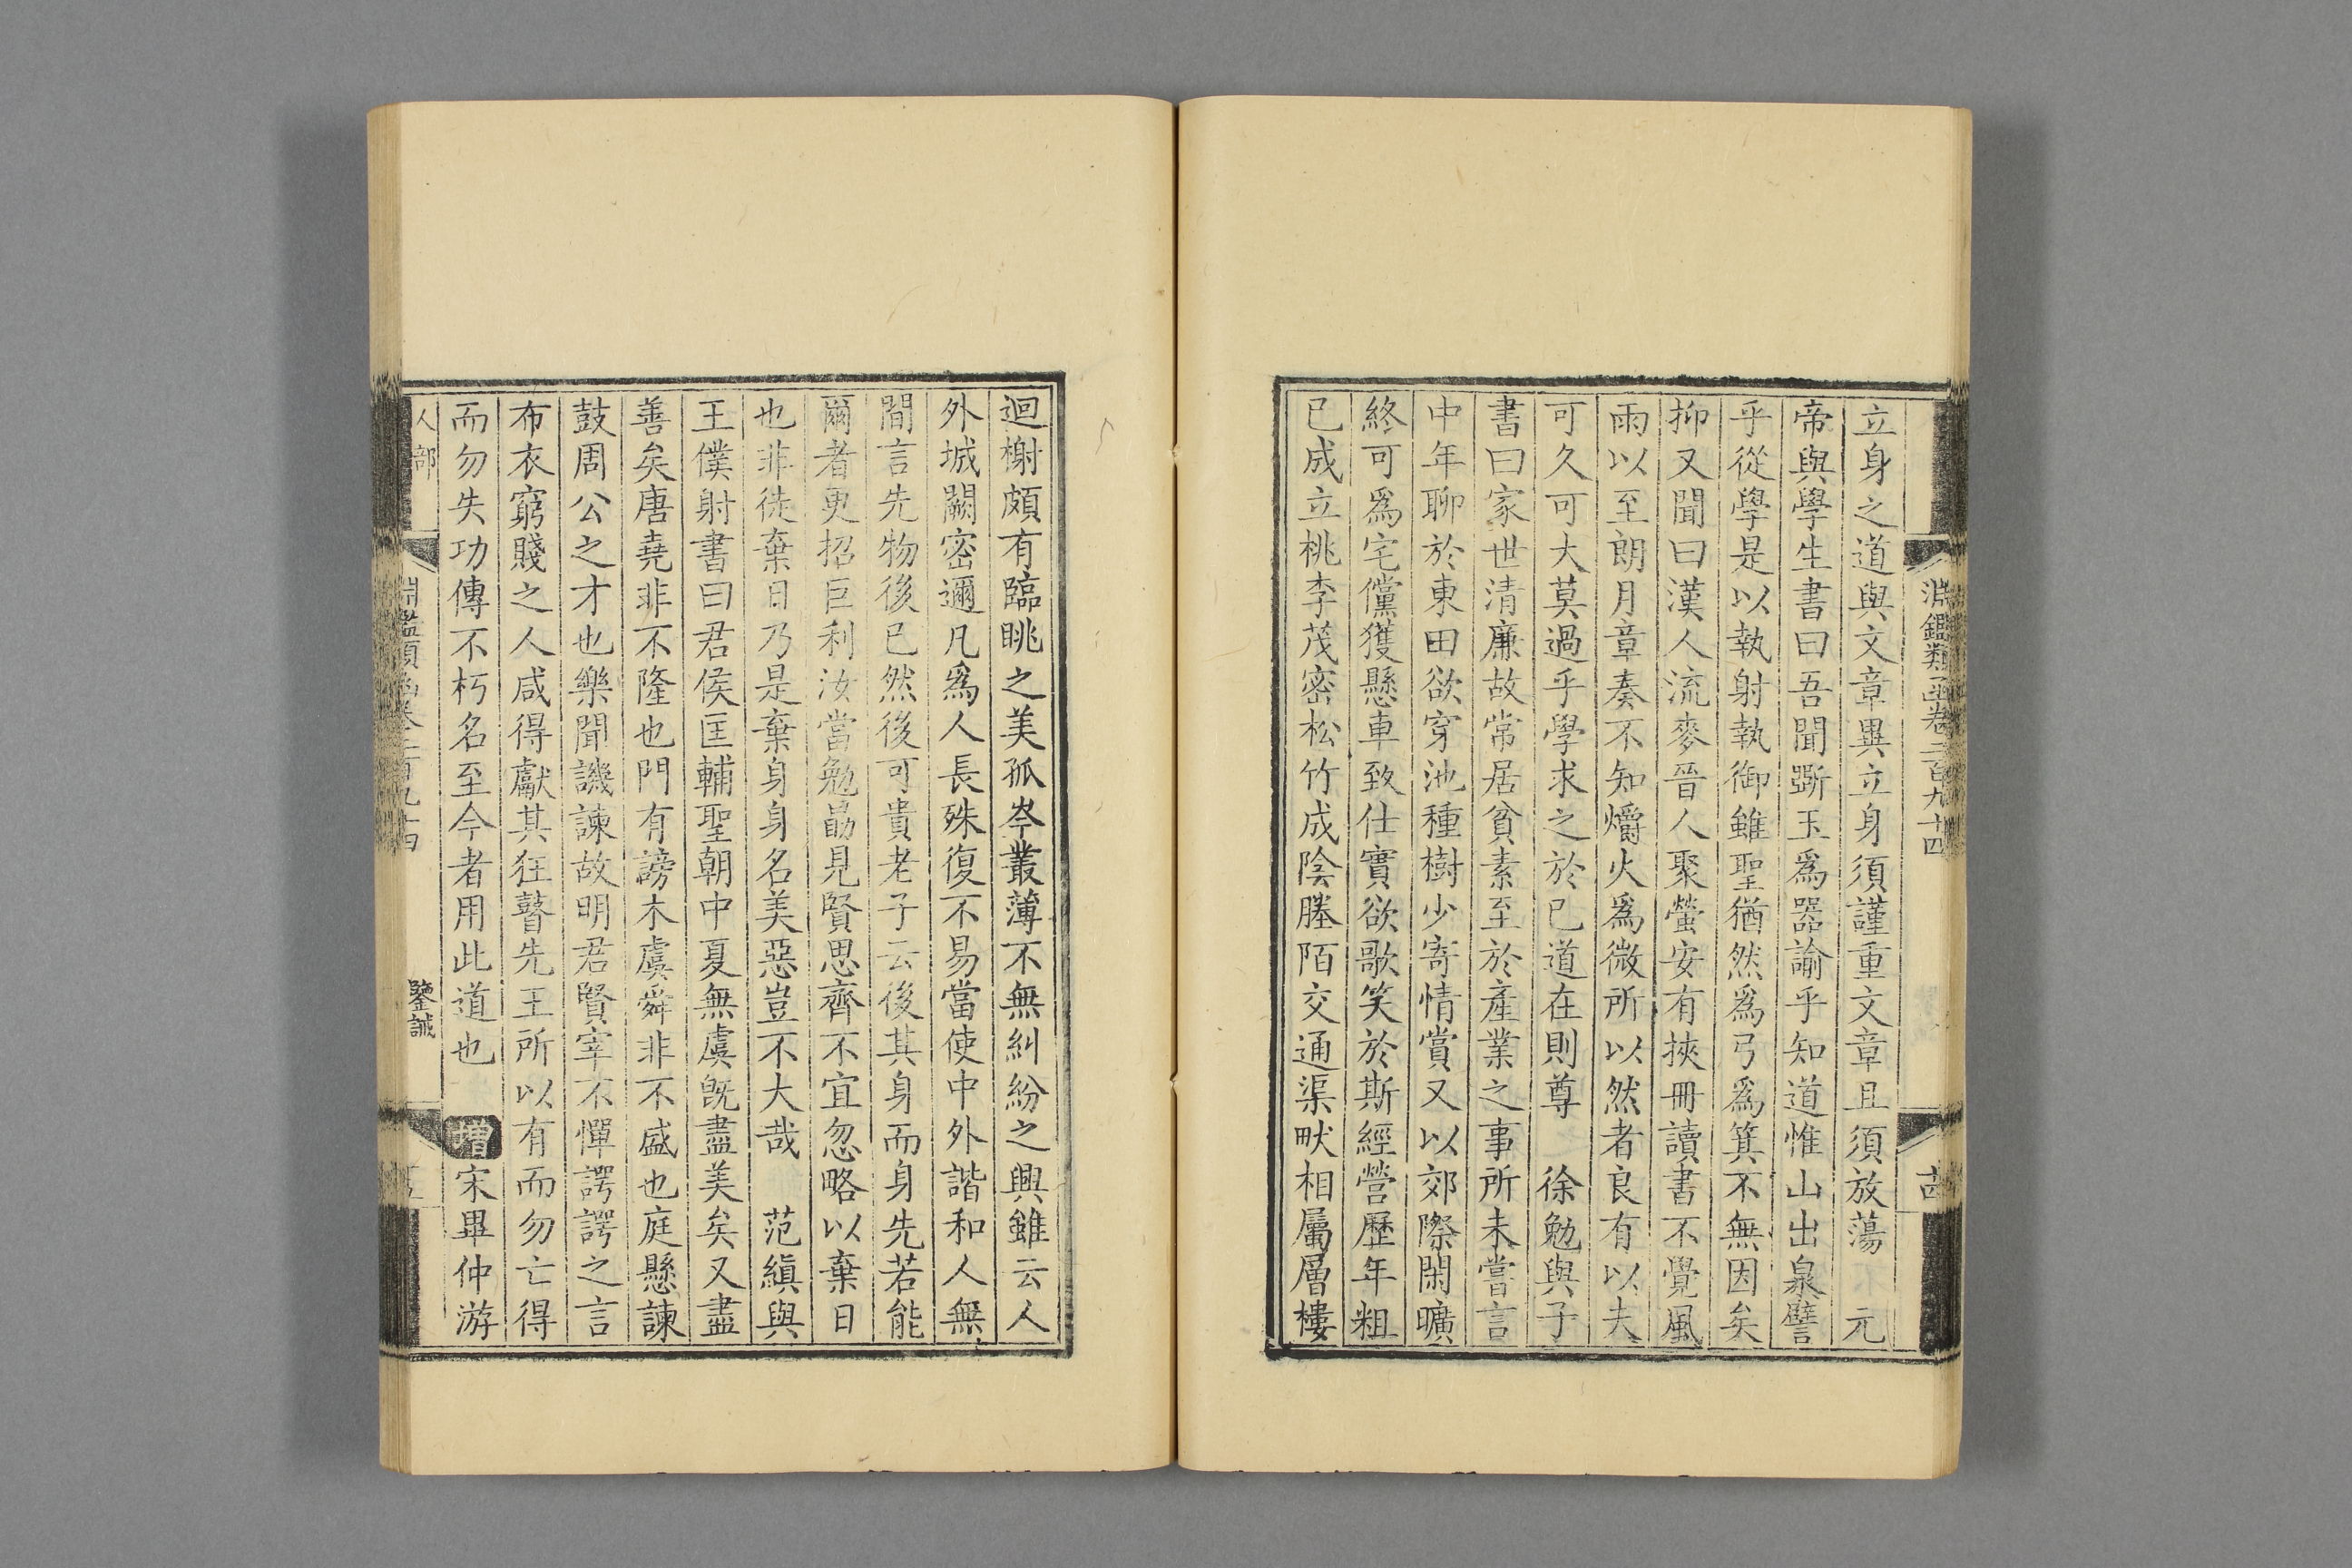 淵鑑類函卷二百九十四
立身之道與文章異立身須謹重文章且須放蕩 元
帝與學生書曰吾聞斲玉爲器諭乎知道惟山出泉譬
乎從學是以執射執御雖聖猶然爲弓爲箕不無因矣
抑又聞曰漢人流麥晉人聚螢安有挾冊讀書不覺風
雨以至朗月章奏不知爝火爲微所以然者良有以夫
可久可大莫過乎學求之於己道在則尊 徐勉與子
書曰家世清廉故常居貧素至於產業之事所未嘗言
中年聊於東田欲穿池種樹少寄情賞又以郊際閑曠
終可爲宅儻獲懸車致仕實欲歌笑於斯經營歷年粗
已成立桃李茂密松竹成陰塍陌交通渠畎相屬層樓
迴榭頗有臨眺之美孤岑叢薄不無糾紛之興雖云人
外城闕密邇凡爲人長殊復不易當使中外諧和人無
間言先物後已然後可貴老子云後其身而身先若能
爾者更招巨利汝當勉勗見賢思齊不宜忽略以棄日
也非徒棄日乃是棄身身名美惡豈不大哉 范縝與
王僕射書曰君侯匡輔聖朝中夏無虞旣盡美矣又盡
善矣唐堯非不隆也門有謗木虞舜非不盛也庭懸諫
鼓周公之才也樂聞譏諫故明君賢宰不憚諤諤之言
布衣窮賤之人咸得獻其狂瞽先王所以有而勿亡得
而勿失功傳不朽名至今者用此道也 增宋畢仲游
人部 淵鑑類函卷二百九十四 鑒誡